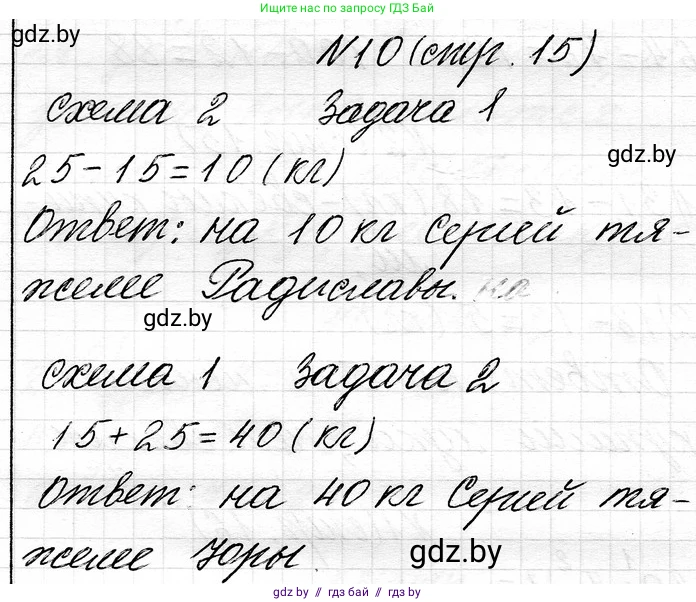 Ищите нас по запросу ГДЗ Бай
gdz.by
N10 (стр. 15)
схема 2 Задача 1
gdz.by
25-15=10 (кг)
Ответ: на 10 кг Сергей тя-
желее Радиславы. на
gdz.by
схема 1 Задача 2
15+25=40 (кг)
Ответ: на 40 кг Сергей тя-
желее Юры
gdz.by
gdz.by // gdz.by // gdz.by